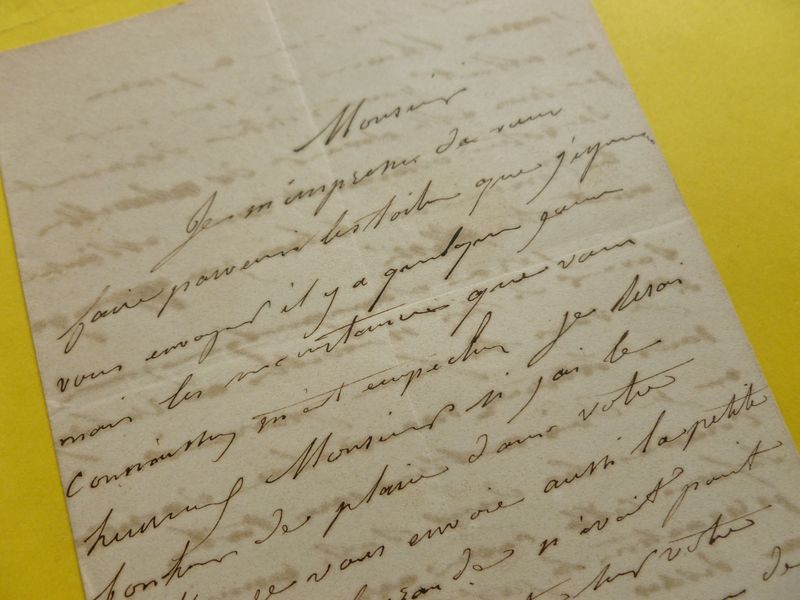 Monsieur
Je m'empresse de vous
faire parvenir les toile que j'
vous envoyer il y a quelque jour
mais les que vous
m'ont empecher Je serai
heureuse Monsieur si j'ai le
bonheur de plaire dans votre
je vous envoie aussi la petite
n'avoit point
votre
de